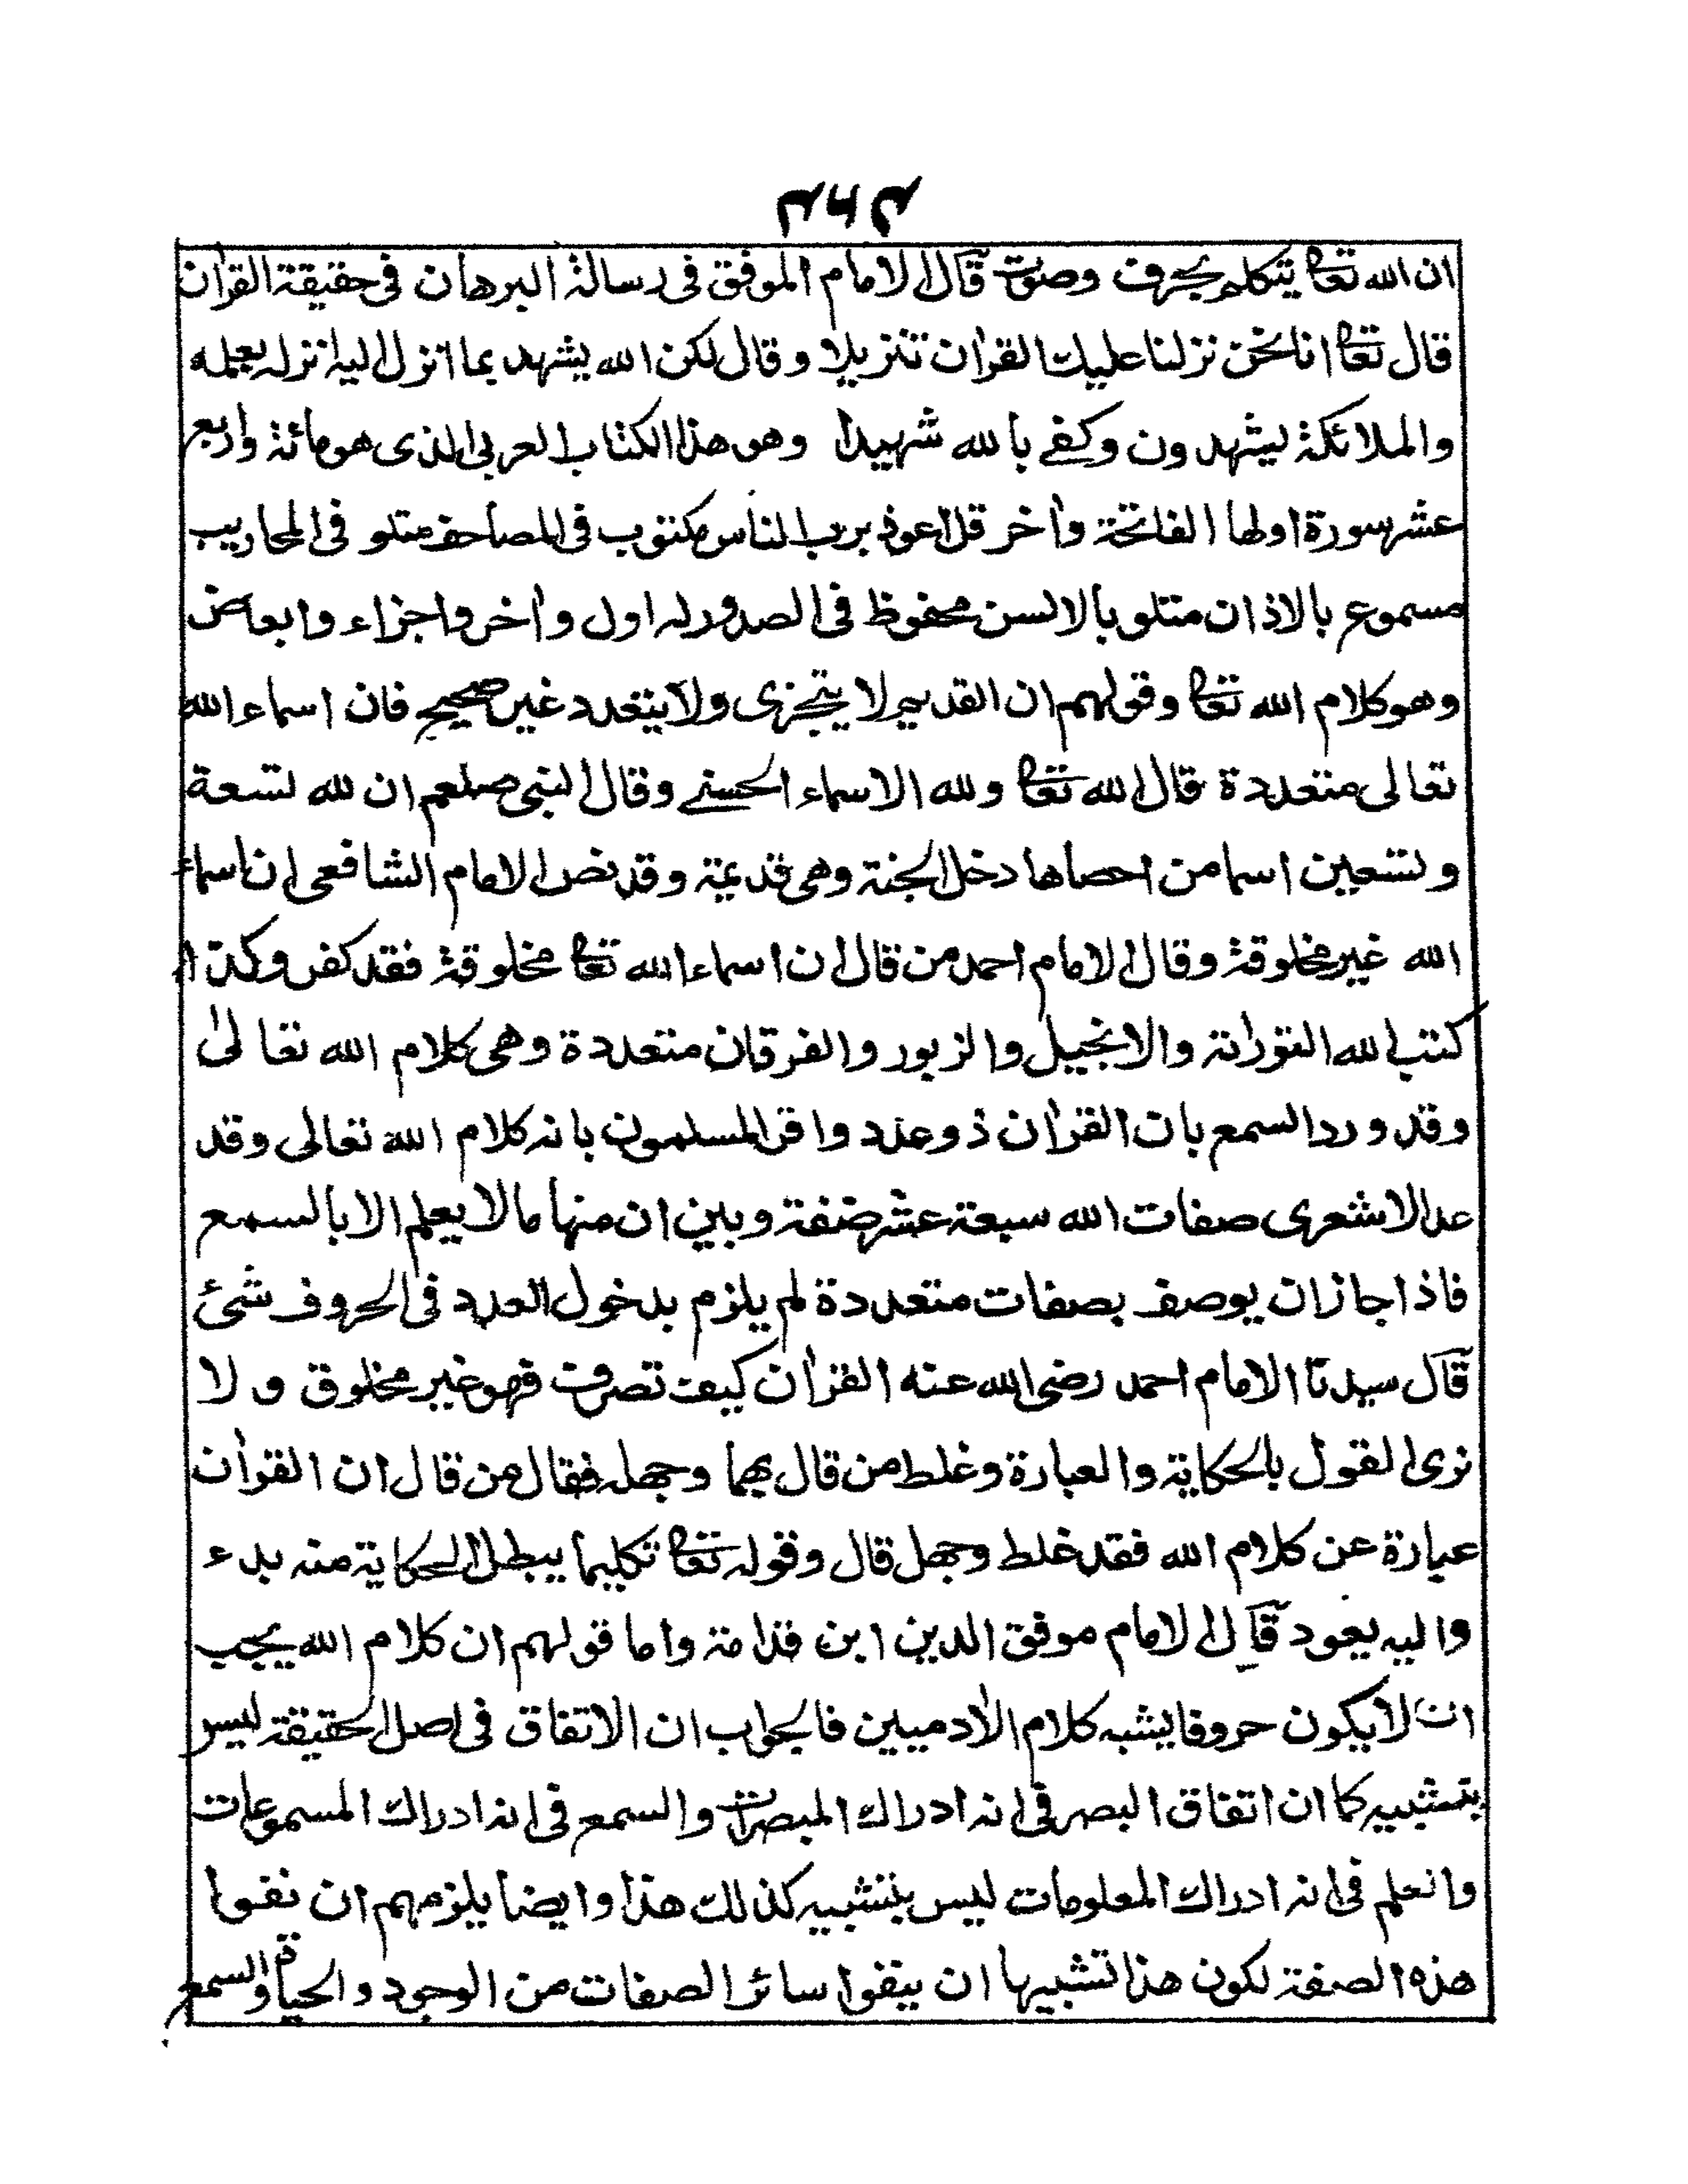 ان الله تعا يتكلم بحرف وصوت قال الامام الموفق فى رسالة البرهان فى حقيقة القراٰن
قال تعا انا نحن نزلنا عليك القراٰن تنزيلا وقال لكن الله يشهد بما انزل اليه انزله بعلمه
والملائكة ليشهدون وكفے بالله شهيدا وهو هذا الكتاب العربى الذى هو مائة واربع
عشر سورة اولها الفاتحة واٰخر قل اعوذ برب الناس مكتوب فى المصاحف متلو فى المحاريب
مسموع بالاذان متلو بالالسن محفوظ فى الصدور له اول واٰخر واجزاء وابعاض
وهو كلام الله تعا وقولهم ان القديم لا يتجزى ولا يتعدد غير صحيح فان اسماء الله
تعالى متعددة قال الله تعا ولله الاسماء الحسنے وقال النبى صلعم ان لله تسعة
وتسعين اسما من احصاها دخل الجنة وهى قديمة وقد نص الامام الشافعى ان اسماء
الله غير مخلوقة وقال الامام احمد من قال ان اسماء الله تعا مخلوقة فقد كفر وكذا
كتب الله التوراٰة والانجيل والزبور والفرقان متعددة وهى كلام الله تعالىٰ
وقد ورد السمع بان القراٰن ذو عدد واقر المسلمون بانه كلام الله تعالى وقد
عد الاشعرى صفات الله سبعة عشر صفة وبين ان منها ما لا يعلم الا بالسمع
فاذا جاز ان يوصف بصفات متعددة لم يلزم بدخول العدد فى الحروف شئ
قال سيدنا الامام احمد رضى الله عنه القراٰن كيف تصرف فهو غير مخلوق ولا
نرى القول بالحكاية والعبارة وغلط من قال بهما وجهله فقال من قال ان القراٰن
عبارة عن كلام الله فقد غلط وجهل قال وقوله تعا تكليما يبطل الحكاية منه بدء
واليه يعود قال الامام موفق الدين ابن قدامة واما قولهم ان كلام الله يجب
ان لا يكون حروفا يشبه كلام الاٰدميين فالجواب ان الاتفاق فى اصل الحقيقة ليس
بتشبيه كما ان اتفاق البصر فى انه ادراك المبصرات والسمع فى انه ادراك المسموعات
والعلم فى انه ادراك المعلومات ليس بتشبيه كذلك هذا وايضا يلزمهم ان نفوا
هذه الصفة لكون هذا تشبيها ان ينفوا سائر الصفات من الوجود والحياة والسمع